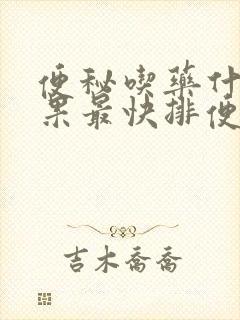 便秘喫藥什
果最快排便
吉木喬喬